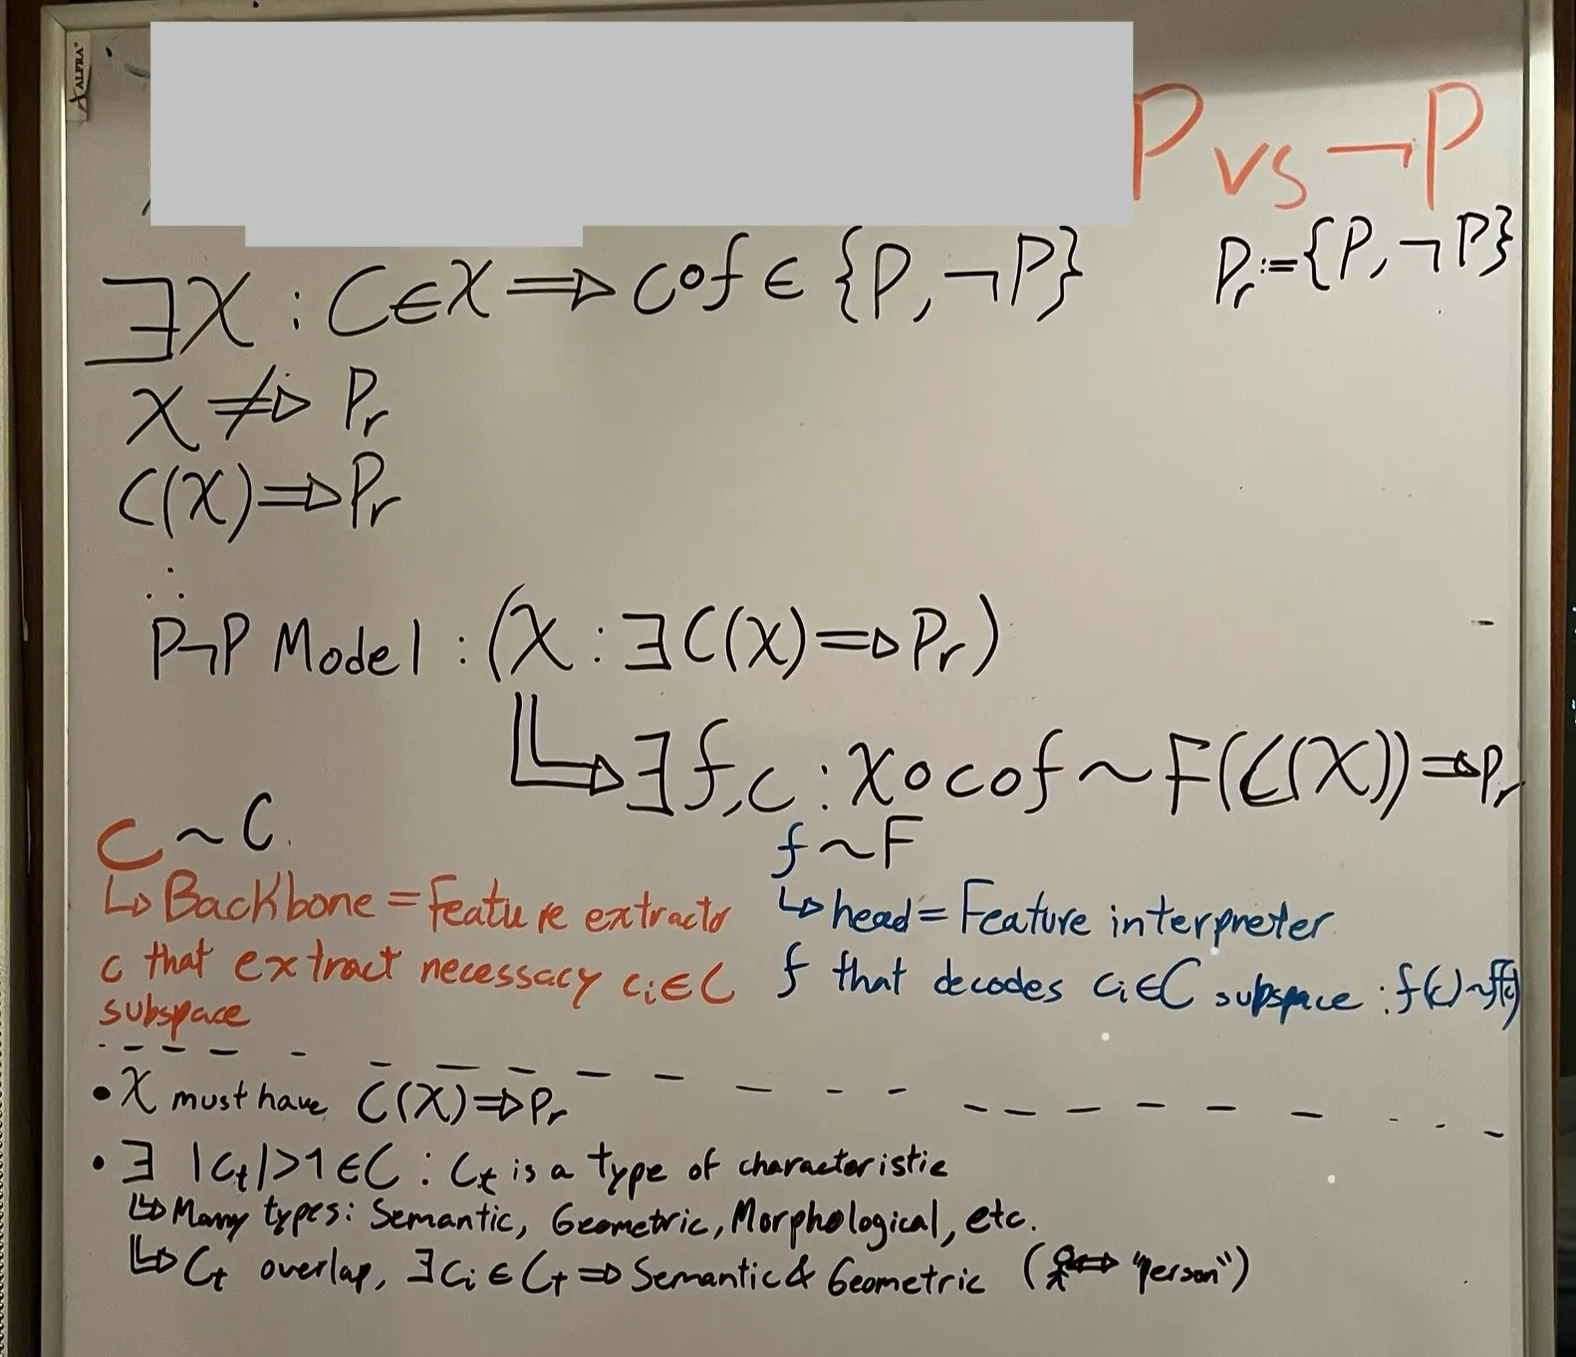 ALFRA
P vs ¬P
∃X : C∈X ⟹ c∘f ∈ {P, ¬P}
Pr := {P, ¬P}
X ≠> Pr
C(X) ⟹ Pr
∴
P¬P Model : (X : ∃ C(X) ⟹ Pr)
∃ f, c : X∘c∘f ~ F(C(X)) ⟹ Pr
C ~ C
↳ Backbone = Feature extractor
c that extract necessacy ci∈C
subspace
f ~ F
↳ head = Feature interpreter
f that decodes ci∈C subspace : f(c) ~
• X must have C(X) ⟹ Pr
• ∃ |Ct|>1 ∈ C : Ct is a type of characteristic
↳ Many types: Semantic, Geometric, Morphological, etc.
↳ Ct overlap, ∃ ci ∈ Ct ⟹ Semantic & Geometric ( ⟺ "person")